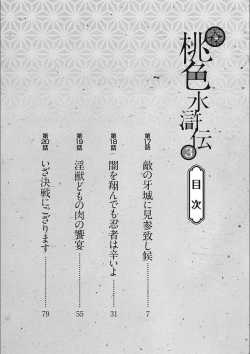 桃色水滸伝
3
目次
第17話 敵の牙城に見参致し候 7
第18話 闇を翔んでも忍者は辛いよ 31
第19話 淫獣どもの肉の饗宴 55
第20話 いざ決戦にござりまする 79